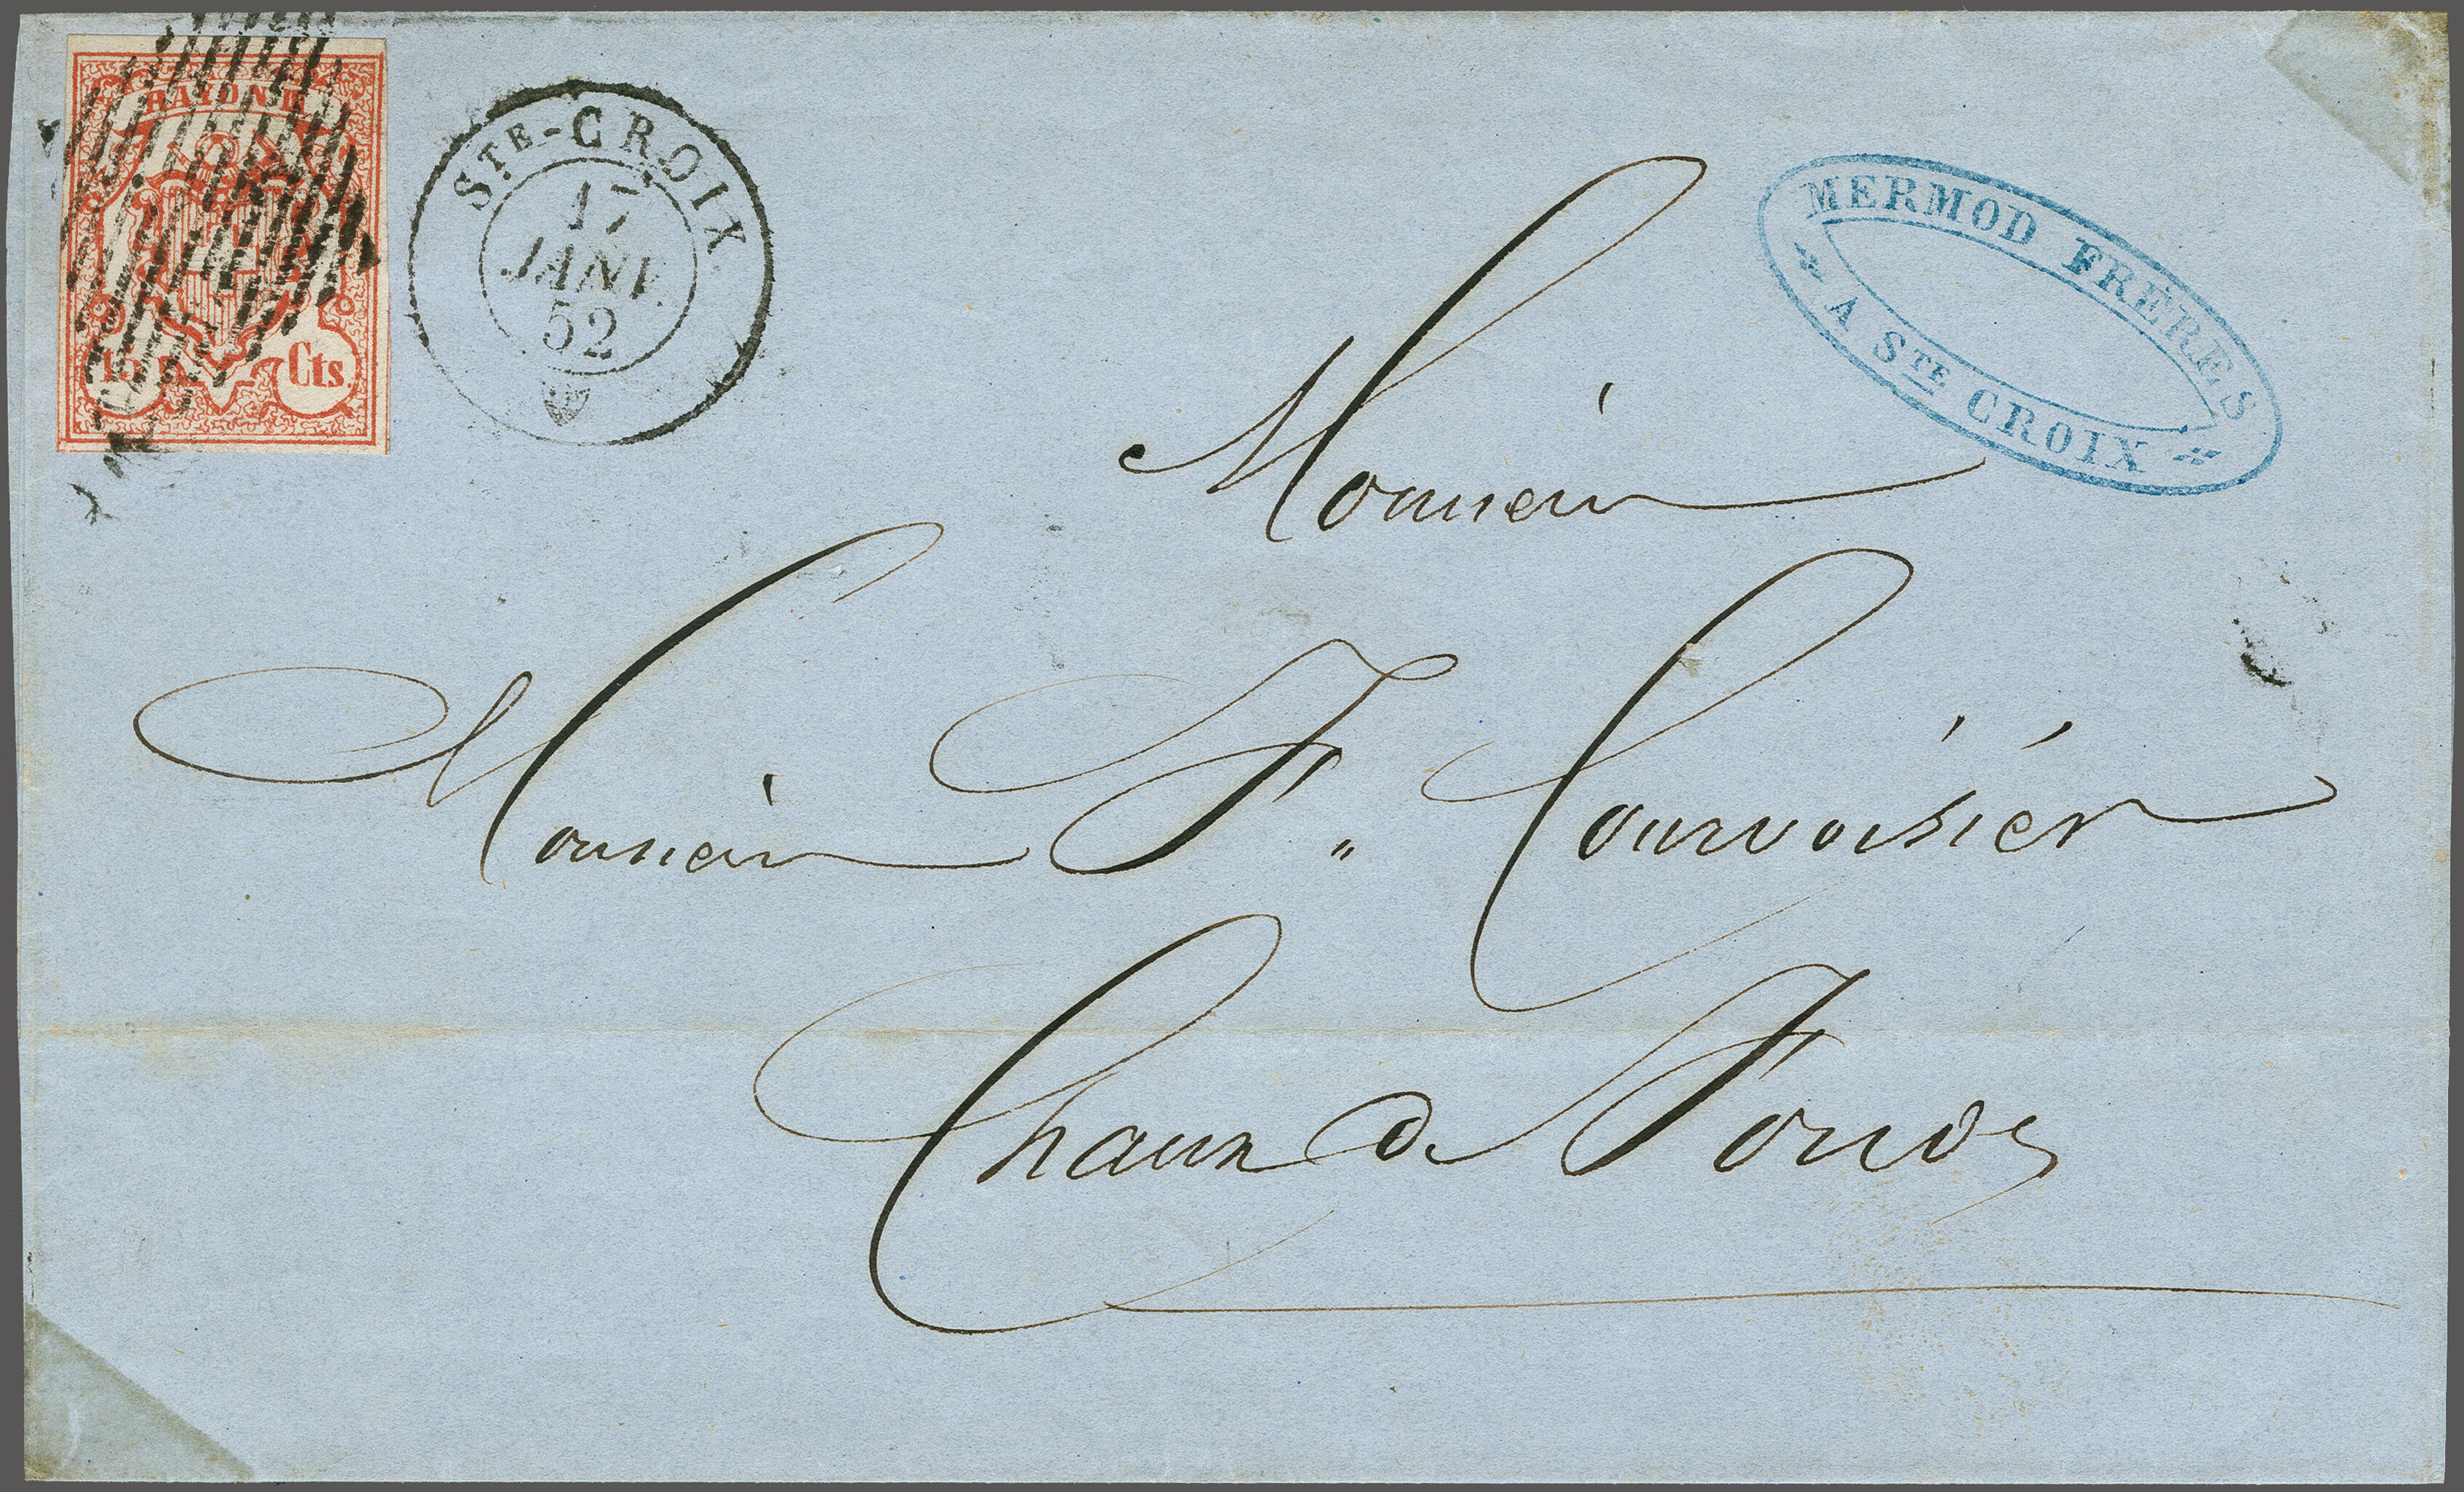 RAYON III
15 Cts.
STE-CROIX
17
JANV.
52
MERMOD FRÈRES
A STE CROIX
Monsieur
Monsieur F„ Courvoisier
Chaux de Fonds